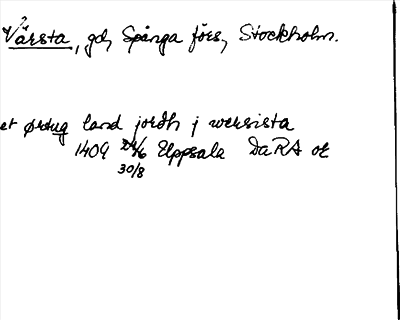 ?
Värsta, gd, Spånga förs, Stockholm.
et ørtug land jordh j wersista
1409 24/6 Uppsala DaRA or
30/8